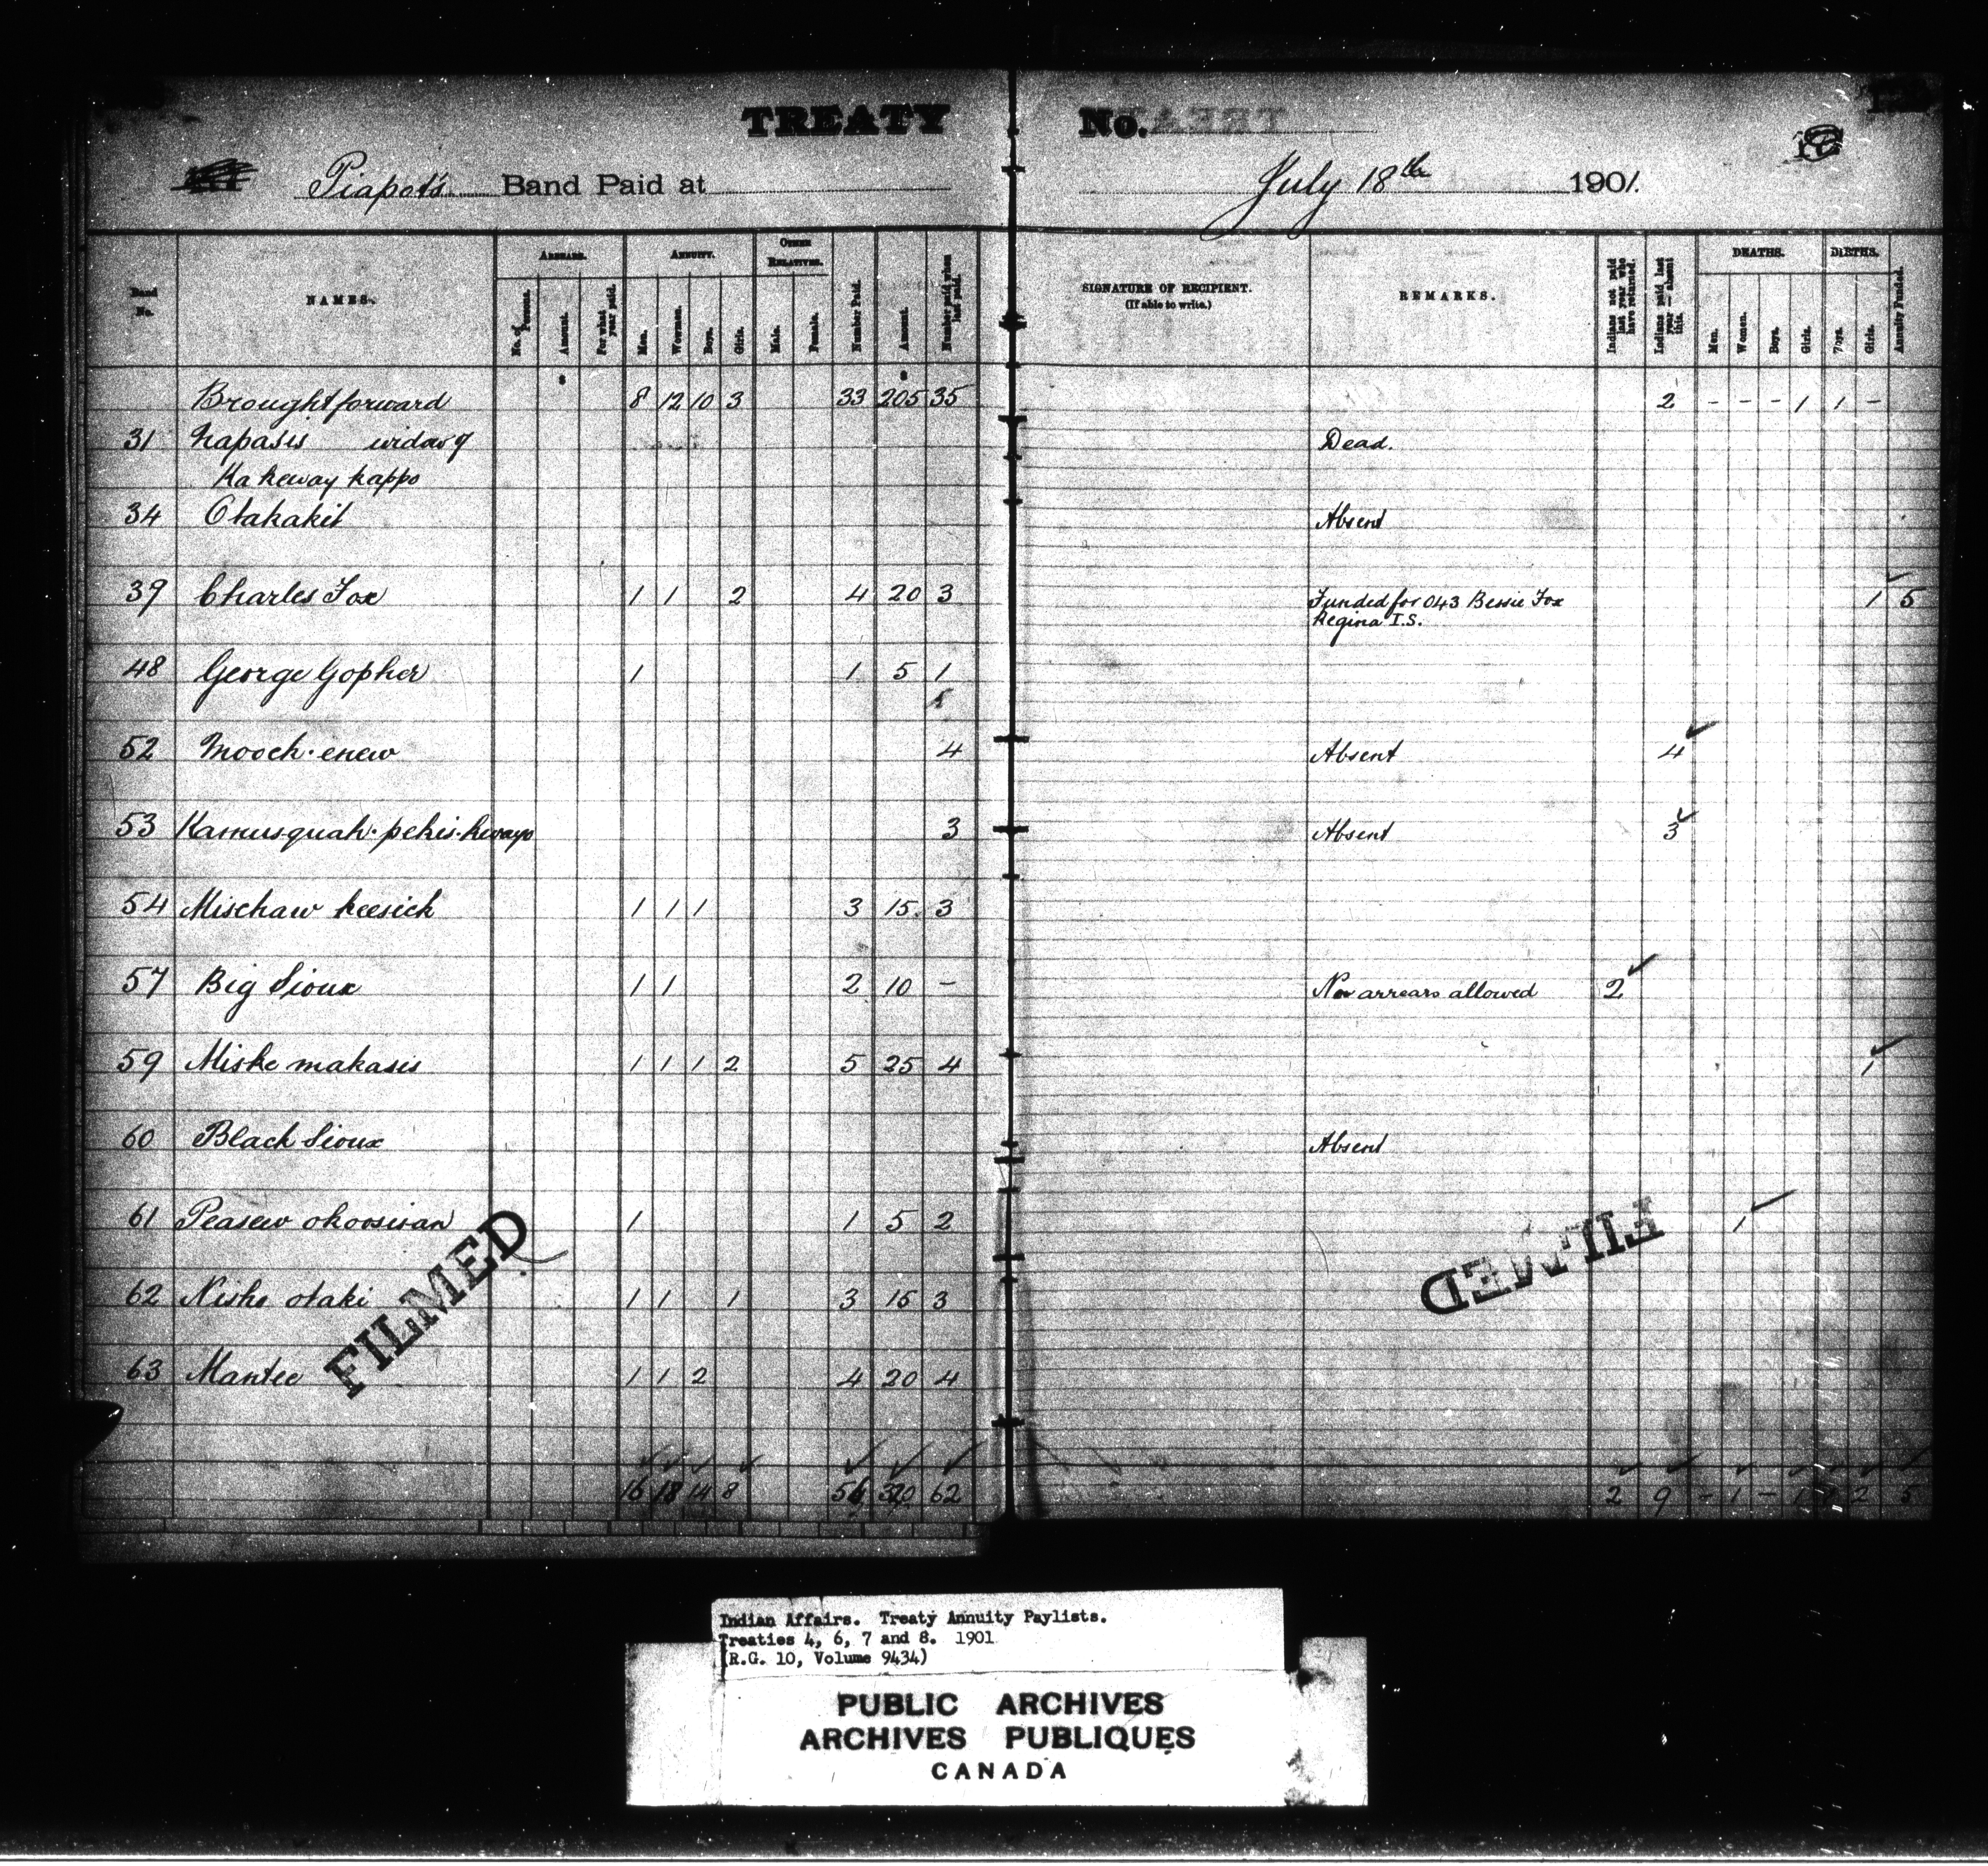 TREATY No.
Piapot's Band Paid at July 18th 1901.
Band No. NAMES. ARREARS. No. of Persons. Amount. For what year paid. ANNUITY. Men. Women. Boys. Girls. OTHER RELATIVES. Male. Female. Number Paid. Amount. Number paid when last paid. SIGNATURE OF RECIPIENT. (If able to write.) REMARKS. Indians not paid last year who have returned. Indians paid last year — absent this. DEATHS. Men. Women. Boys. Girls. BIRTHS. Boys. Girls. Annuity Funded.
$ $
Brought forward 8 12 10 3 33 205 35 2 - - - 1 1 -
31 Napasis widow of Dead.
Kakeway kappo
34 Otakakit Absent
39 Charles Fox 1 1 2 4 20 3 Funded for 043 Bessie Fox 1 5
Regina I.S.
48 George Gopher 1 1 5 1
52 Mooch-enew 4 Absent 4
53 Kamusquah-pekis-kwayo 3 Absent 3
54 Mischaw keesick 1 1 1 3 15 3
57 Big Sioux 1 1 2 10 - No arrears allowed 2
59 Miske makasis 1 1 1 2 5 25 4 1
60 Black Sioux Absent
61 Peasew okoosisan 1 1 5 2 1
62 Nisho otaki 1 1 1 3 15 3
63 Mantee 1 1 2 4 20 4
FILMED
FILMED
16 18 14 8 56 320 62 2 9 - 1 - 1 1 2 5
Indian Affairs. Treaty Annuity Paylists.
Treaties 4, 6, 7 and 8. 1901
(R.G. 10, Volume 9434)
PUBLIC ARCHIVES
ARCHIVES PUBLIQUES
CANADA